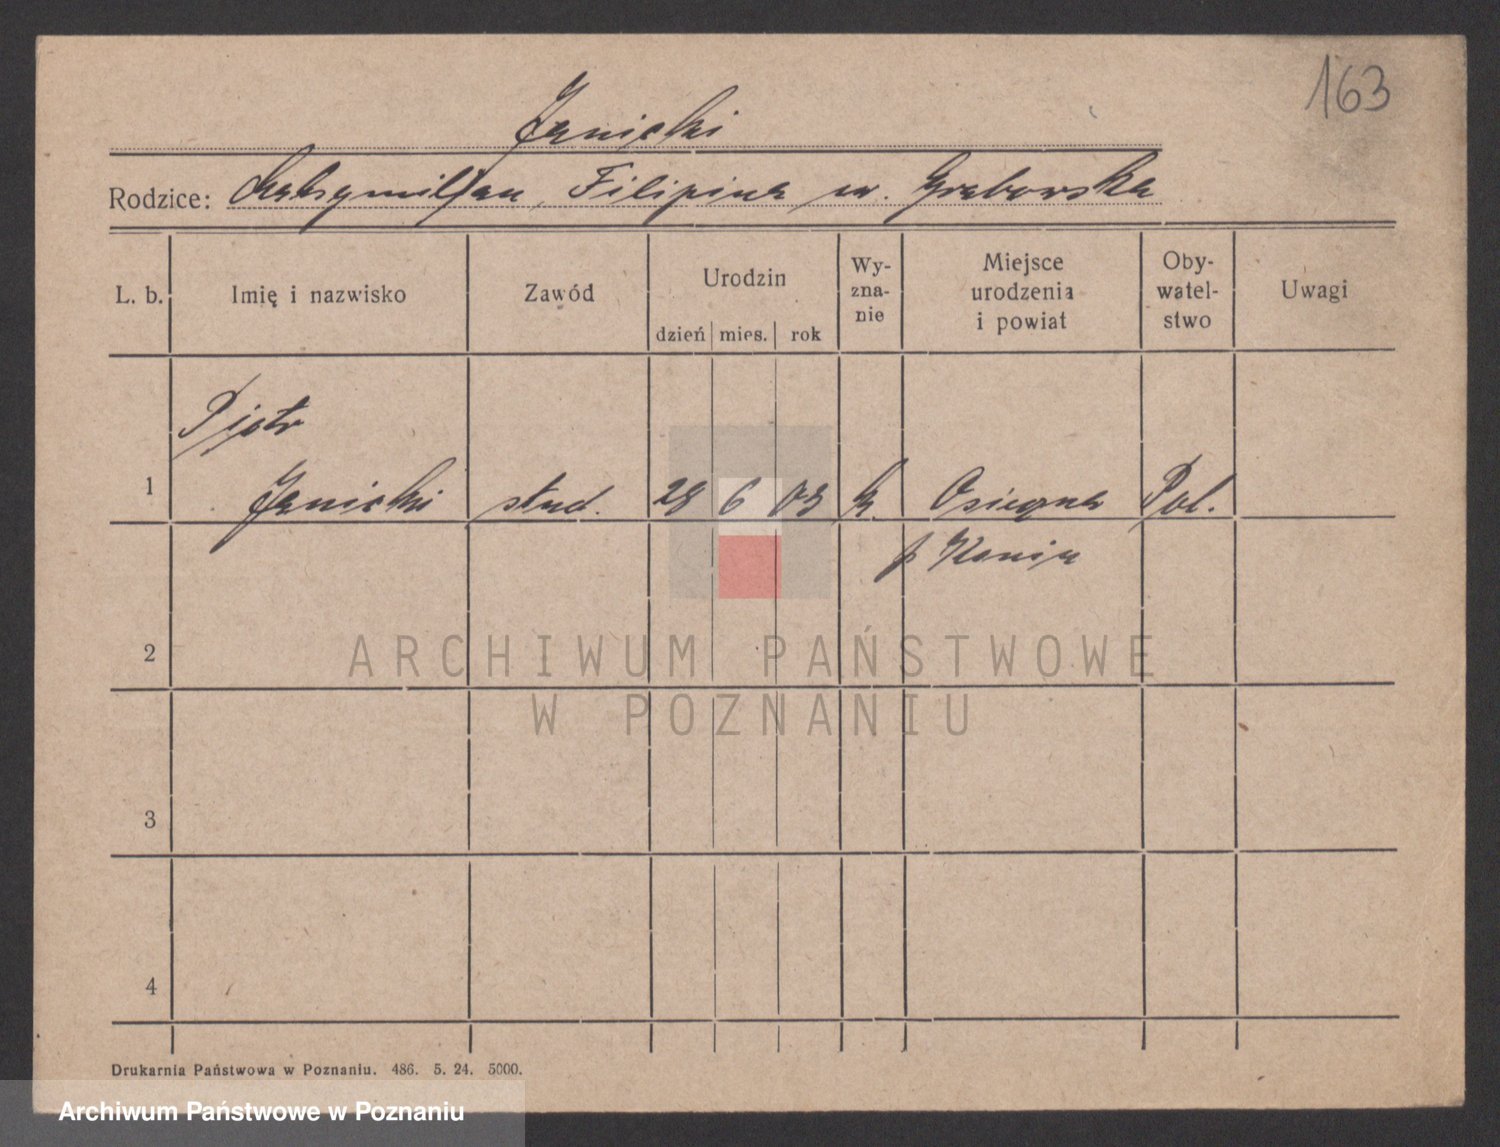 163
Janicki
Rodzice: Maksymiljan, Filipina ur. Grabowska
L. b. Imię i nazwisko Zawód Urodzin Wy-zna-nie Miejsce urodzenia i powiat Oby-watel-stwo Uwagi
dzień mies. rok
Piotr
1 Janicki stud. 28 6 03 k. Osiecza Pol.
p Konin
2
ARCHIWUM PAŃSTWOWE
W POZNANIU
3
4
Drukarnia Państwowa w Poznaniu. 486. 5. 24. 5000.
Archiwum Państwowe w Poznaniu